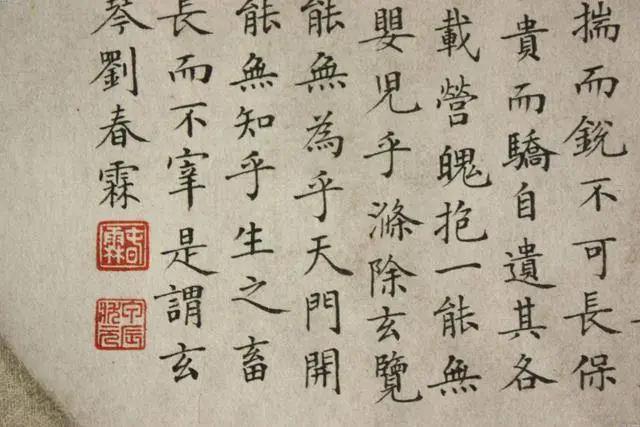 揣而銳不可長保
貴而驕自遺其各
載營魄抱一能無
嬰児乎滌除玄覽
能無為乎天門開
能無知乎生之畜
長而不宰是謂玄
琴劉春霖
春霖